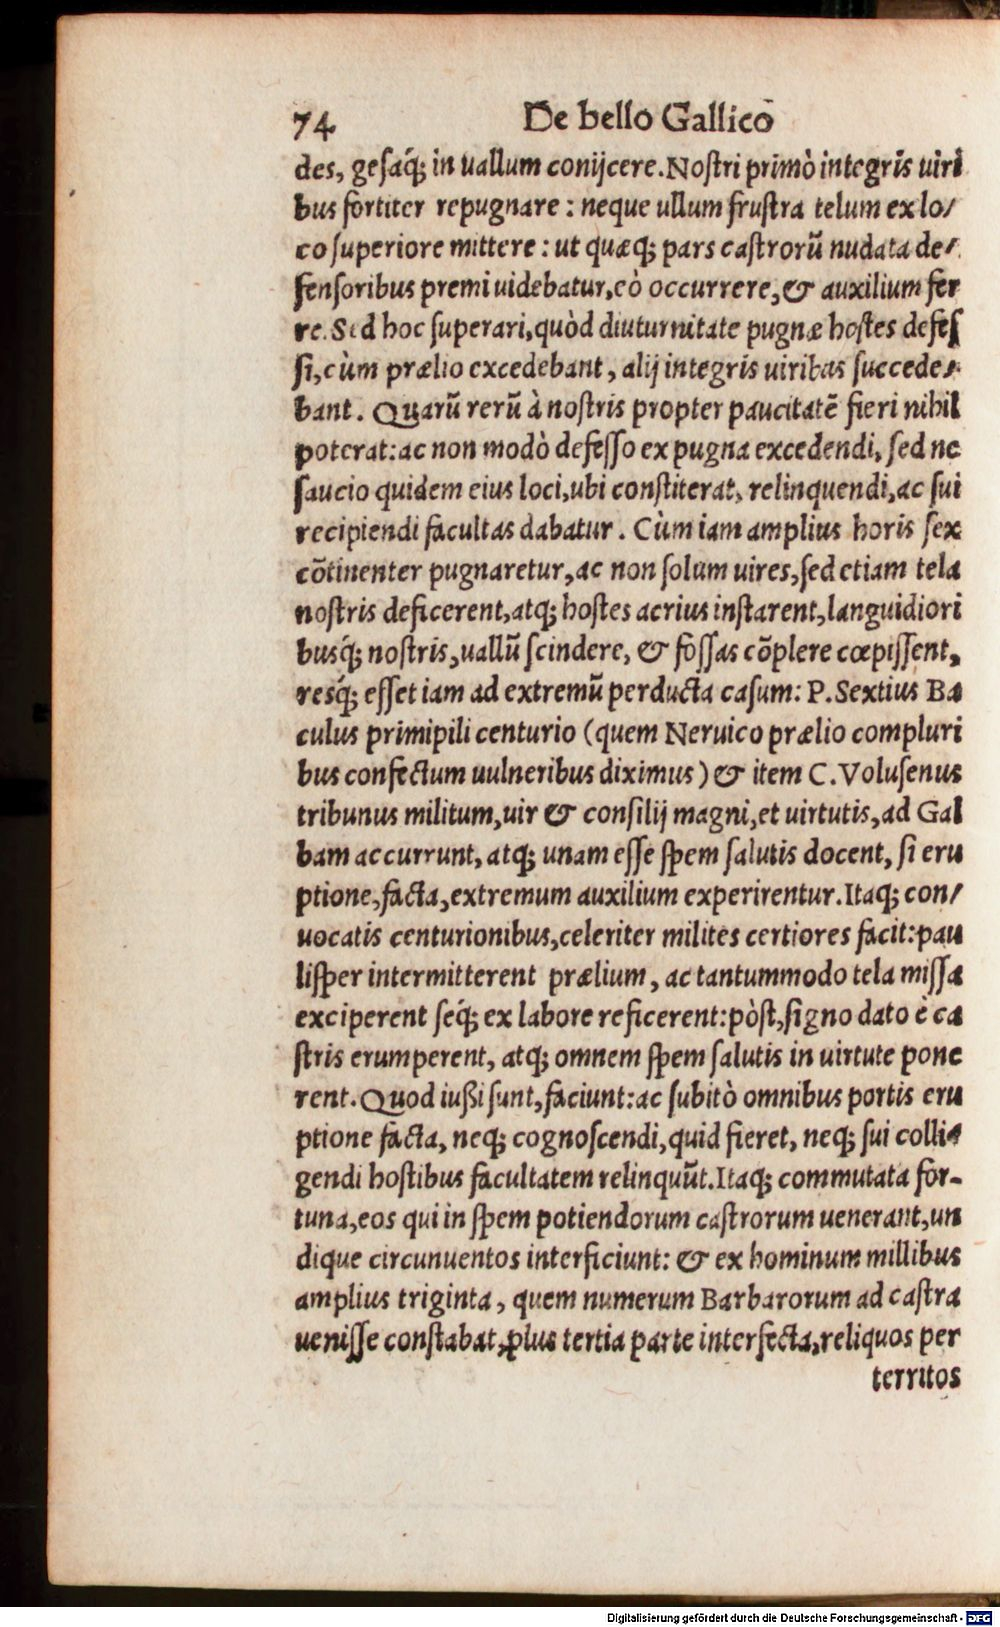 74 De bello Gallico
des, gesaq́; in uallum conijcere. Nostri primò integris uiri
bus fortiter repugnare: neque ullum frustra telum ex lo/
co superiore mittere: ut quæq; pars castrorũ nudata de/
fensoribus premi uidebatur, eò occurrere, & auxilium fer
re. Sed hoc superari, quòd diuturnitate pugnæ hostes defes
si, cùm prælio excedebant, alij integris uiribus succede/
bant. Quarũ rerũ à nostris propter paucitatẽ fieri nihil
poterat: ac non modò defesso ex pugna excedendi, sed ne
saucio quidem eius loci, ubi constiterat, relinquendi, ac sui
recipiendi facultas dabatur. Cùm iam amplius horis sex
cõtinenter pugnaretur, ac non solum uires, sed etiam tela
nostris deficerent, atq; hostes acrius instarent, languidiori
busq́; nostris, uallũ scindere, & fossas cõplere cœpissent,
resq́; esset iam ad extremũ perducta casum: P. Sextius Ba
culus primipili centurio (quem Neruico prælio compluri
bus confectum uulneribus diximus) & item C. Volusenus
tribunus militum, uir & consilij magni, et uirtutis, ad Gal
bam accurrunt, atq; unam esse spem salutis docent, si eru
ptione, facta, extremum auxilium experirentur. Itaq; con/
uocatis centurionibus, celeriter milites certiores facit: pau
lisper intermitterent prælium, ac tantummodo tela missa
exciperent seq́; ex labore reficerent: pòst, signo dato è ca
stris erumperent, atq; omnem spem salutis in uirtute pone
rent. Quod iußi sunt, faciunt: ac subitò omnibus portis eru
ptione facta, neq; cognoscendi, quid fieret, neq; sui colli/
gendi hostibus facultatem relinquũt. Itaq; commutata for-
tuna, eos qui in spem potiendorum castrorum uenerant, un
dique circunuentos interficiunt: & ex hominum millibus
amplius triginta, quem numerum Barbarorum ad castra
uenisse constabat, plus tertia parte interfecta, reliquos per
territos
Digitalisierung gefördert durch die Deutsche Forschungsgemeinschaft - DFG